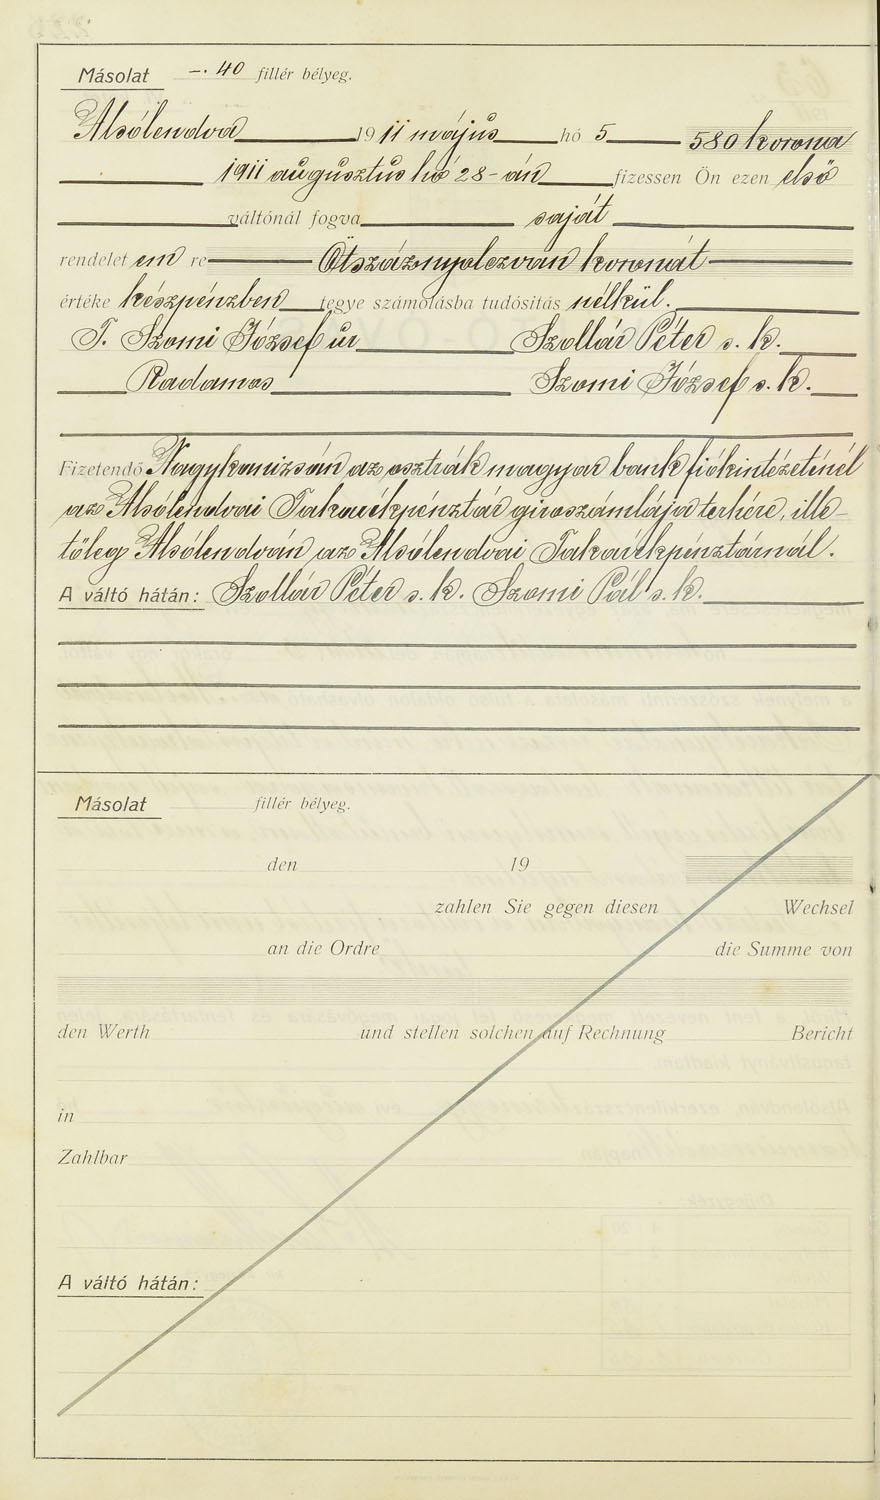 Másolat -. 40 fillér bélyeg.
Alsólendva 1911 május hó 5 580 korona
1911 augusztus hó 28-án fizessen Ön ezen első
váltónál fogva saját
rendelet em re Ötszáznyolczvan koronát
értéke készpénzben tegye számolásba tudósitás nélkül.
T. Szomi József úr Szollár Péter s. k.
Radamos Szomi József s. k.
Fizetendő Nagykanizsán az osztrák magyar bank fiókintézeténél
az Alsólendvai Takarékpénztár giroszámlája terhére, ille-
tőleg Alsólendván az Alsólendvai Takarékpénztárnál.
A váltó hátán: Szollár Péter s. k. Szomi Pál s. k.
Másolat fillér bélyeg.
den 19
zahlen Sie gegen diesen Wechsel
an die Ordre die Summe von
den Werth und stellen solchen auf Rechnung Bericht
in
Zahlbar
A váltó hátán: